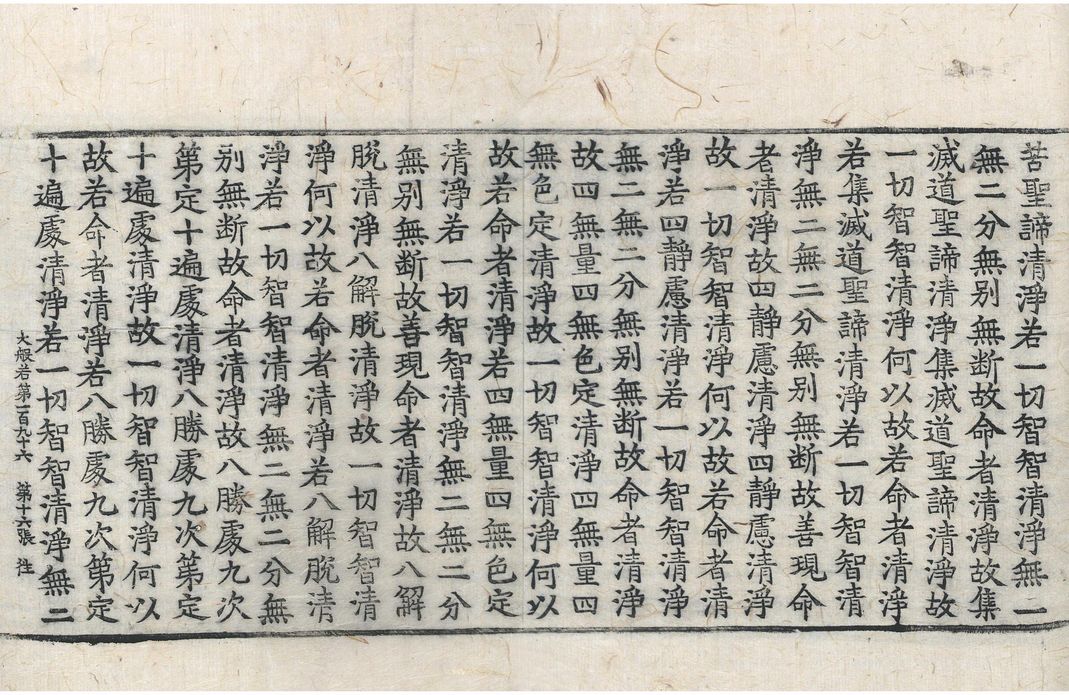 苦聖諦清淨若一切智智清淨無二
無二分無別無断故命者清淨故集
滅道聖諦清淨集滅道聖諦清淨故
一切智智清淨何以故若命者清淨
若集滅道聖諦清淨若一切智智清
淨無二無二分無別無断故善現命
者清淨故四靜慮清淨四靜慮清淨
故一切智智清淨何以故若命者清
淨若四靜慮清淨若一切智智清淨
無二無二分無別無断故命者清淨
故四無量四無色定清淨四無量四
無色定清淨故一切智智清淨何以
故若命者清淨若四無量四無色定
清淨若一切智智清淨無二無二分
無別無断故善現命者清淨故八解
脫清淨八解脫清淨故一切智智清
淨何以故若命者清淨若八解脫清
淨若一切智智清淨無二無二分無
別無断故命者清淨故八勝處九次
第定十遍處清淨八勝處九次第定
十遍處清淨故一切智智清淨何以
故若命者清淨若八勝處九次第定
十遍處清淨若一切智智清淨無二
大般若第一百九十六 第十六張 性